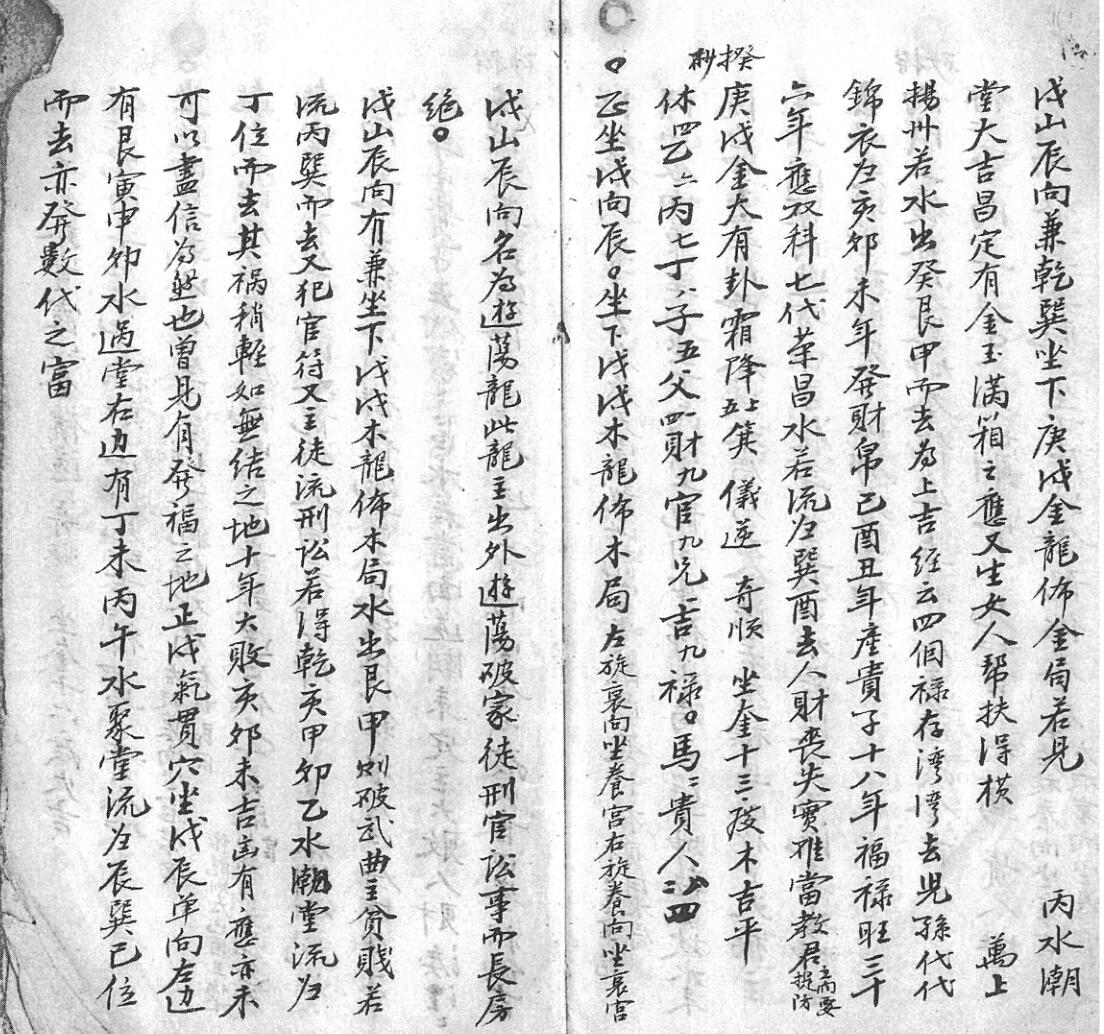 戌山辰向兼乾巽坐下庚戌金龍佈金局若見　丙水潮
堂大吉昌定有金玉滿箱之應又生女人帮扶得横　萬上
揚州若水出癸艮甲而去為上吉經云四個禄存湾湾去児孫代代
錦衣庄亥卯未年發財帛巳酉丑年産貴子十八年福禄旺三十
六年應双科七代荣昌水若流归巽酉去人財丧失實难當教君立向要提防
揆
庚戌金大有卦霜降五上箕　儀逆　奇順　坐奎十三　度木吉平
休四乙六丙七丁八子五父四財九官九兄一吉九禄。馬二貴人二四
。正坐戌向辰。坐下戊戌木龍佈木局左旋衰向坐養宫右旋養向坐衰宫
戌山辰向名為遊蕩龍此龍主出外遊蕩破家徒刑官訟事而長房
絶。
戌山辰向有兼坐下戊戌木龍佈木局水出艮甲则破武曲主贫賎若
流丙巽而去又犯官符又主徒流刑訟若得乾亥甲卯乙水潮堂流归
丁位而去其禍稍軽如無结之地十年大敗亥卯未吉凶有應亦不
可以盡信為㤀也曽見有發福之地正戌氣貫穴坐戌辰单向左边
有艮寅甲卯水過堂右边有丁未丙午水聚堂流归辰巽巳位
而去亦發數代之富